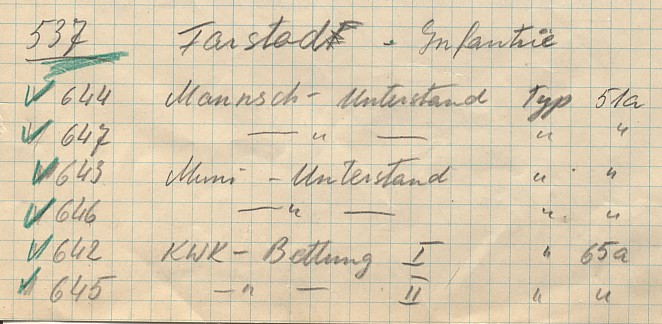 537 Farstadt - Infantrie
✓ 644 Mannsch - Unterstand Typ 51a
✓ 647 — " — " "
✓ 643 Muni - Unterstand " "
✓ 646 — " — " "
✓ 642 KWK - Bettung I " 65a
✓ 645 — " — II " "